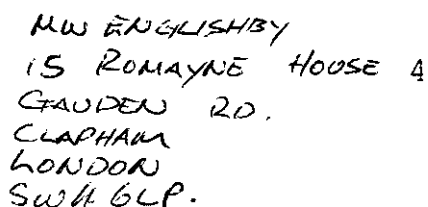 MW ENGLISHBY
15 ROMAYNE HOUSE 4
GAUDEN RD.
CLAPHAM
LONDON
SW4 6LP.